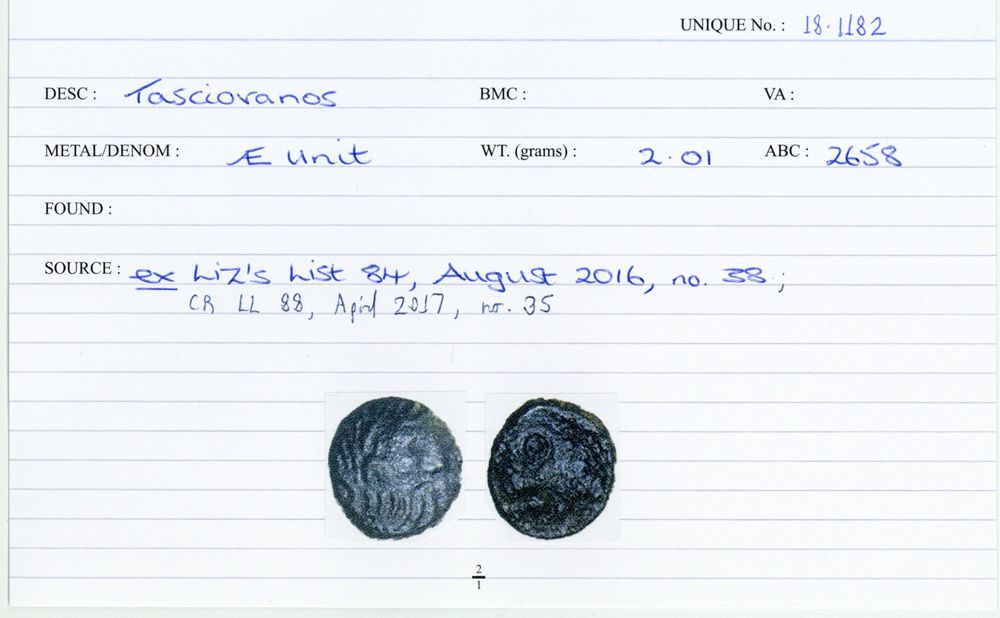 UNIQUE No. : 18.1182
DESC : Tasciovanos BMC : VA :
METAL/DENOM : Æ unit WT. (grams) : 2.01 ABC : 2658
FOUND :
SOURCE : ex Liz's List 84, August 2016, no. 38 ;
CR LL 88, April 2017, no. 35
2
1